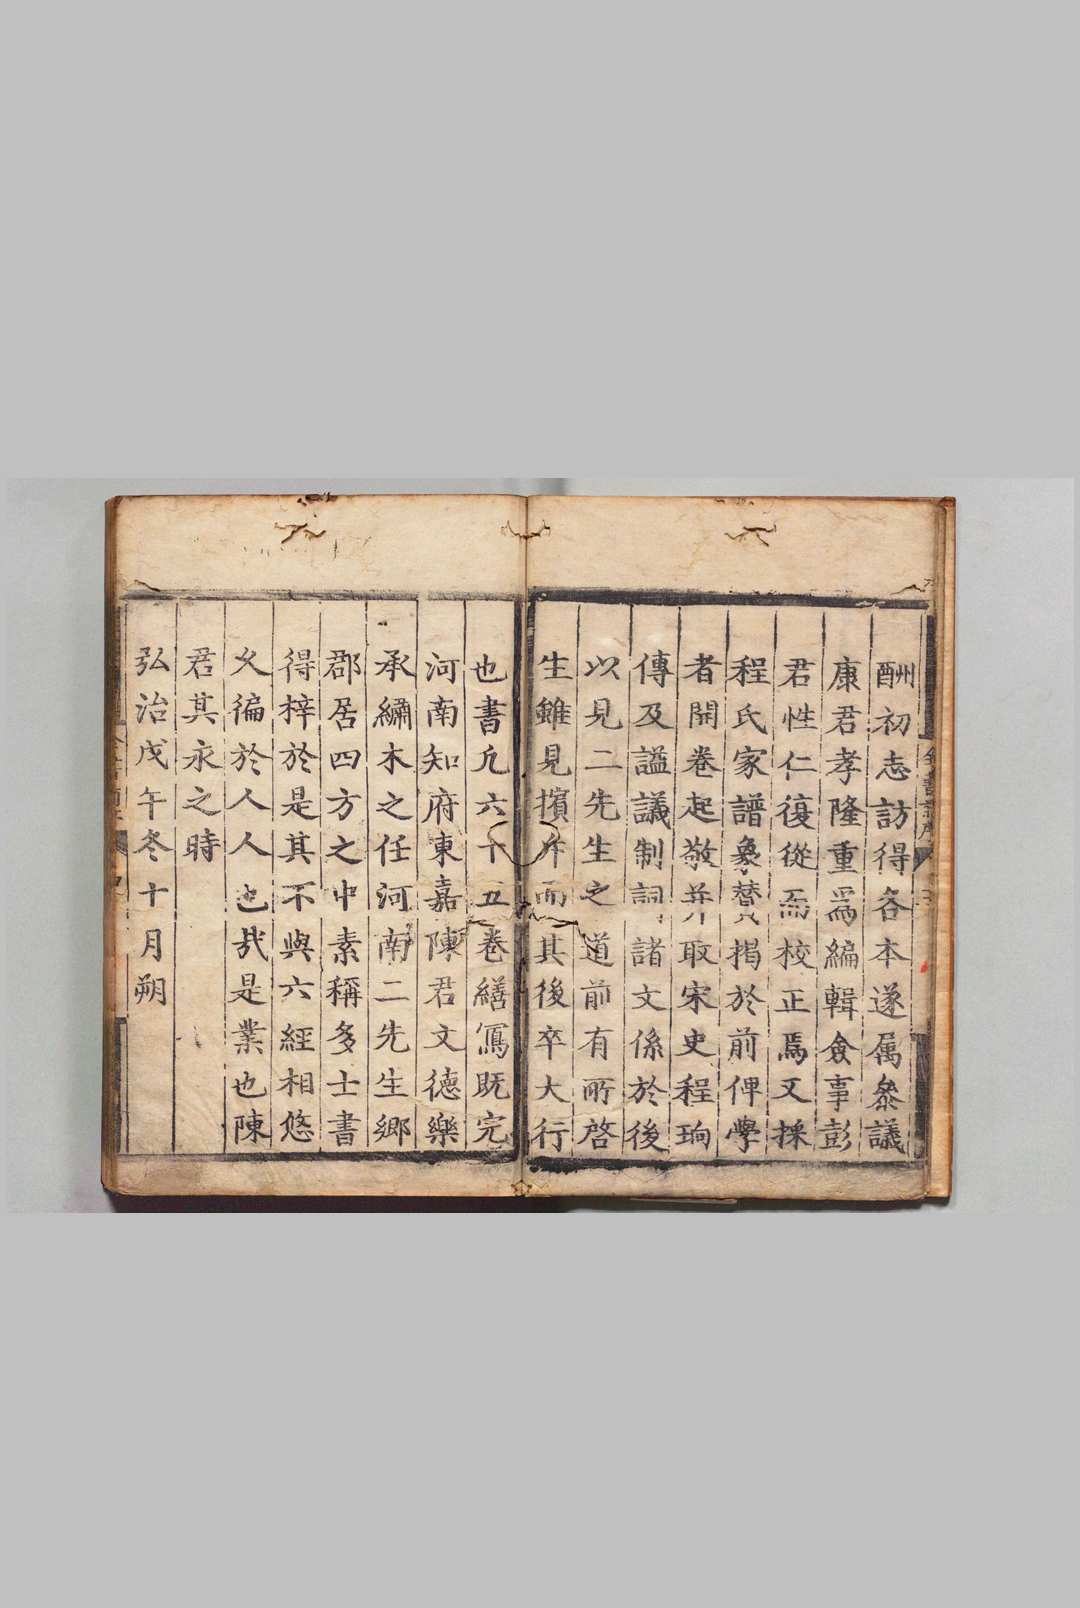 酬初志訪得各本遂属叅議
康君孝隆重爲編輯僉事彭
君性仁復從而校正焉又採
程氏家譜象贊掲於前俾學
者開卷起敬并取宋史程珦
傳及謚議制詞諸文係於後
以見二先生之道前有所啓
生雖見擯斥而其後卒大行
也書凢六十五卷繕寫既完
河南知府東嘉陳君文德樂
承繡木之任河南二先生鄉
郡居四方之中素稱多士書
得梓於是其不與六經相悠
乆徧於人人也㦲是業也陳
君其永之時
弘治戊午冬十月朔